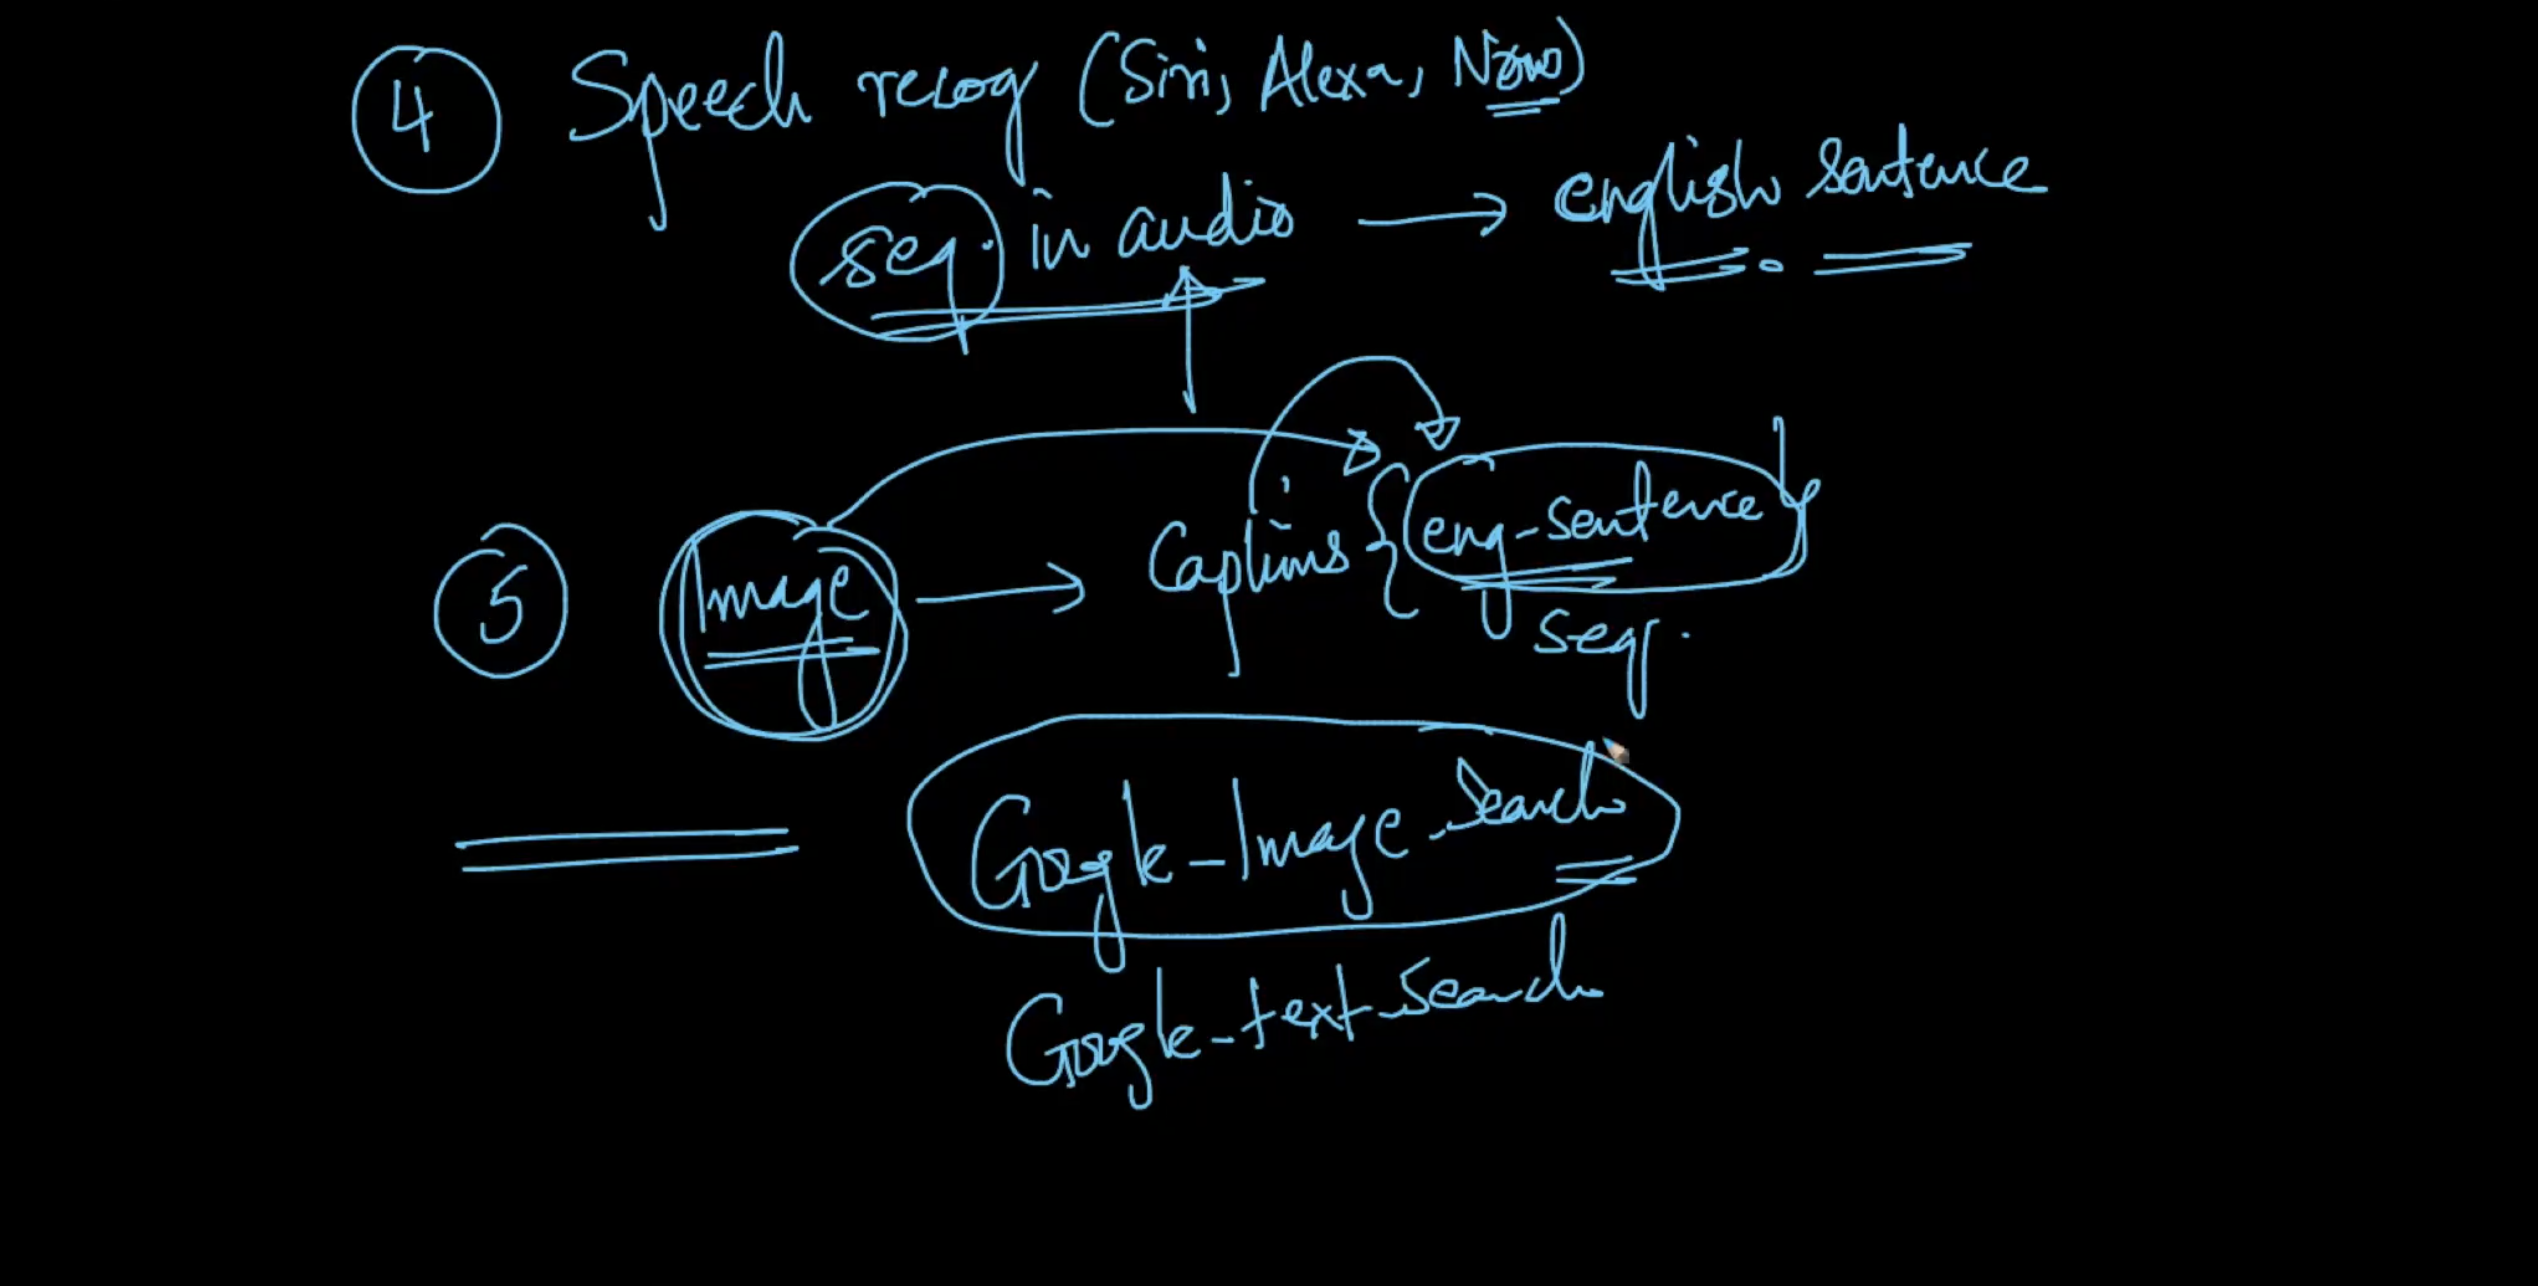 4 Speech recog (Siri, Alexa, Now)
seq. in audio → english sentence
5 Image → Captions { eng-sentence }
seq.
Google-Image-Search
Google-text-Search